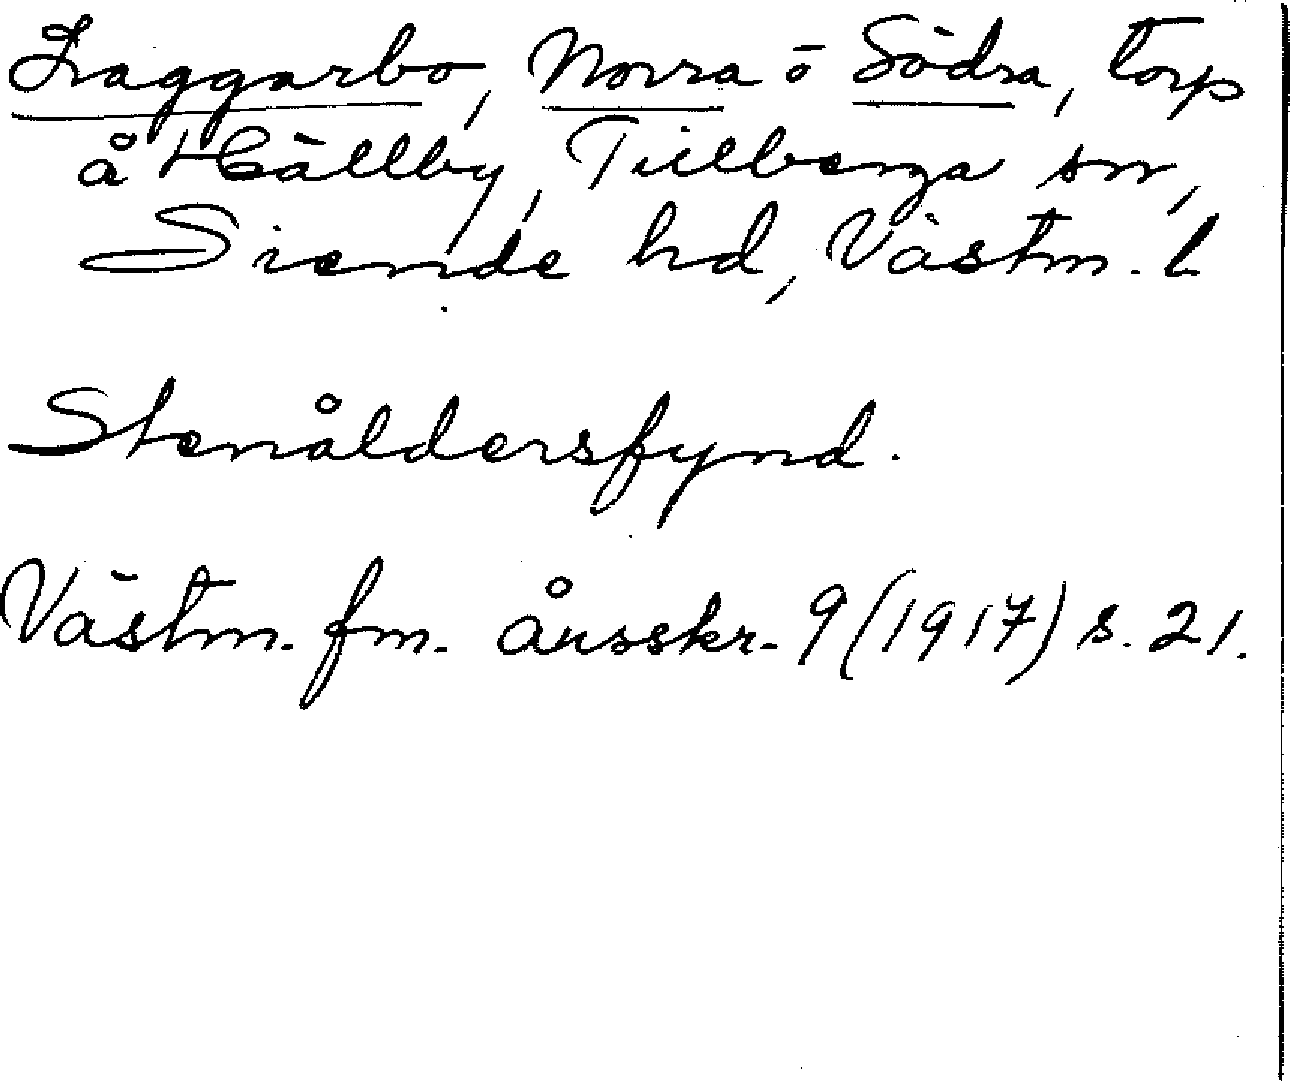 Laggarbo, Norra o Södra, torp
å Hällby, Tillberga sn,
Siende hd, Västm. l
Stenåldersfynd.
Västm. fm. årsskr. 9 (1917) s. 21.